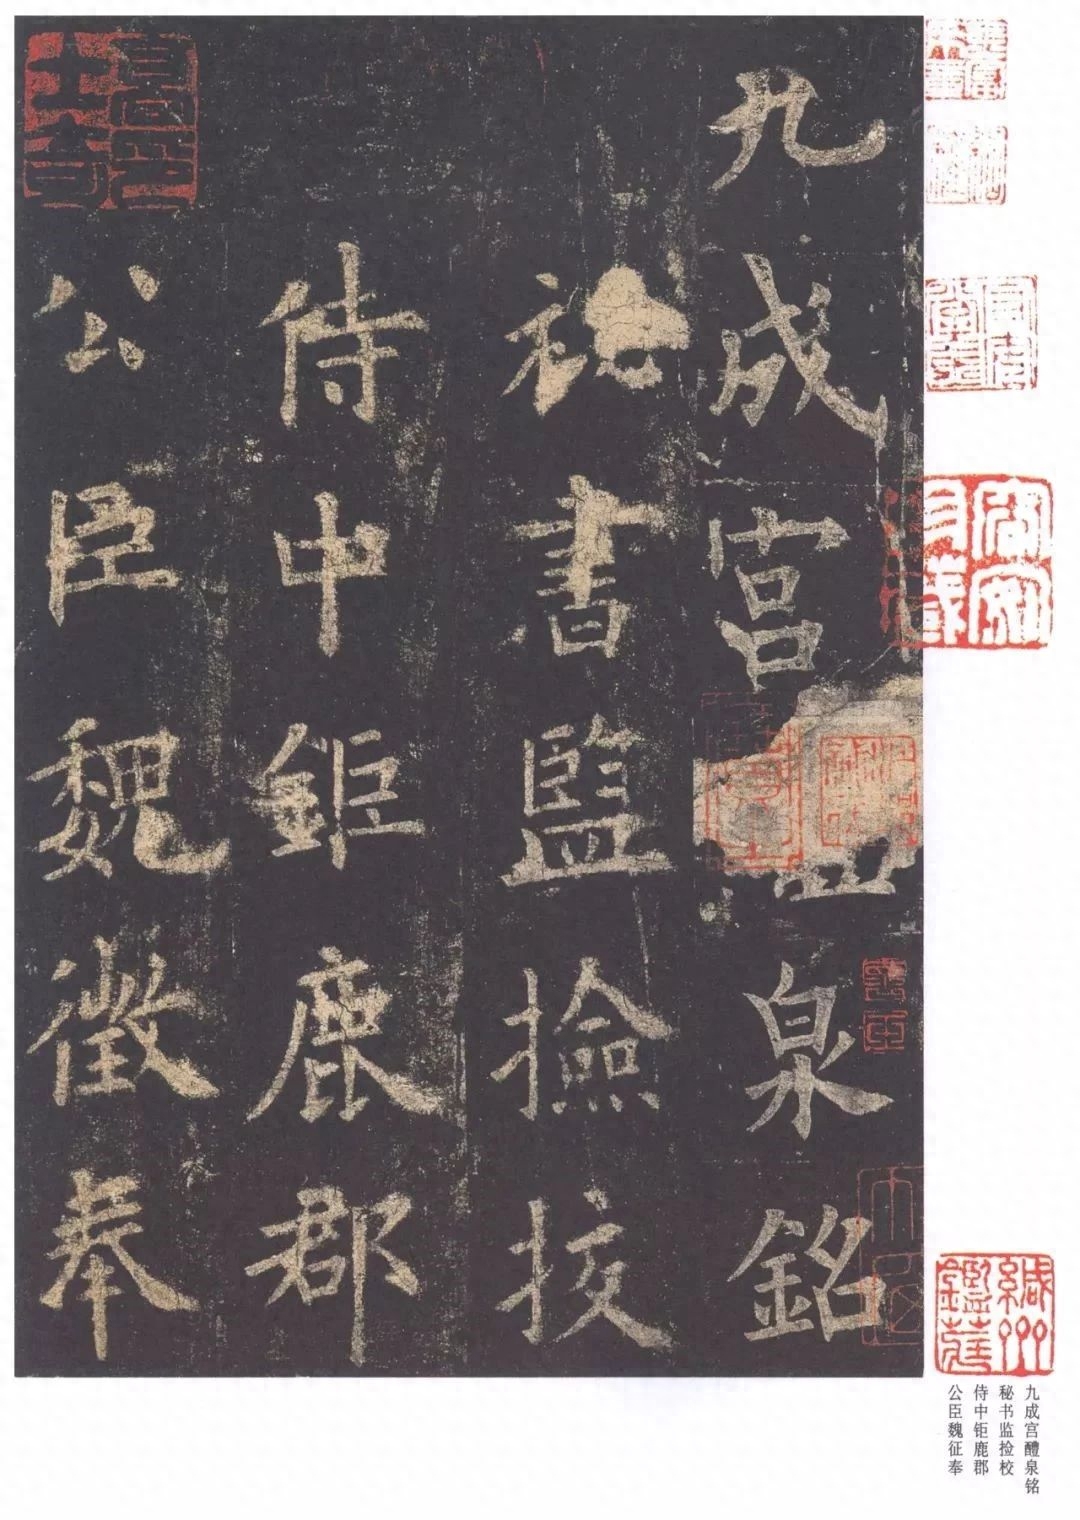 九成宮醴泉銘
秘書監撿挍
侍中鉅鹿郡
公臣魏徵奉
九成宫醴泉铭
秘书监捡校
侍中钜鹿郡
公臣魏征奉